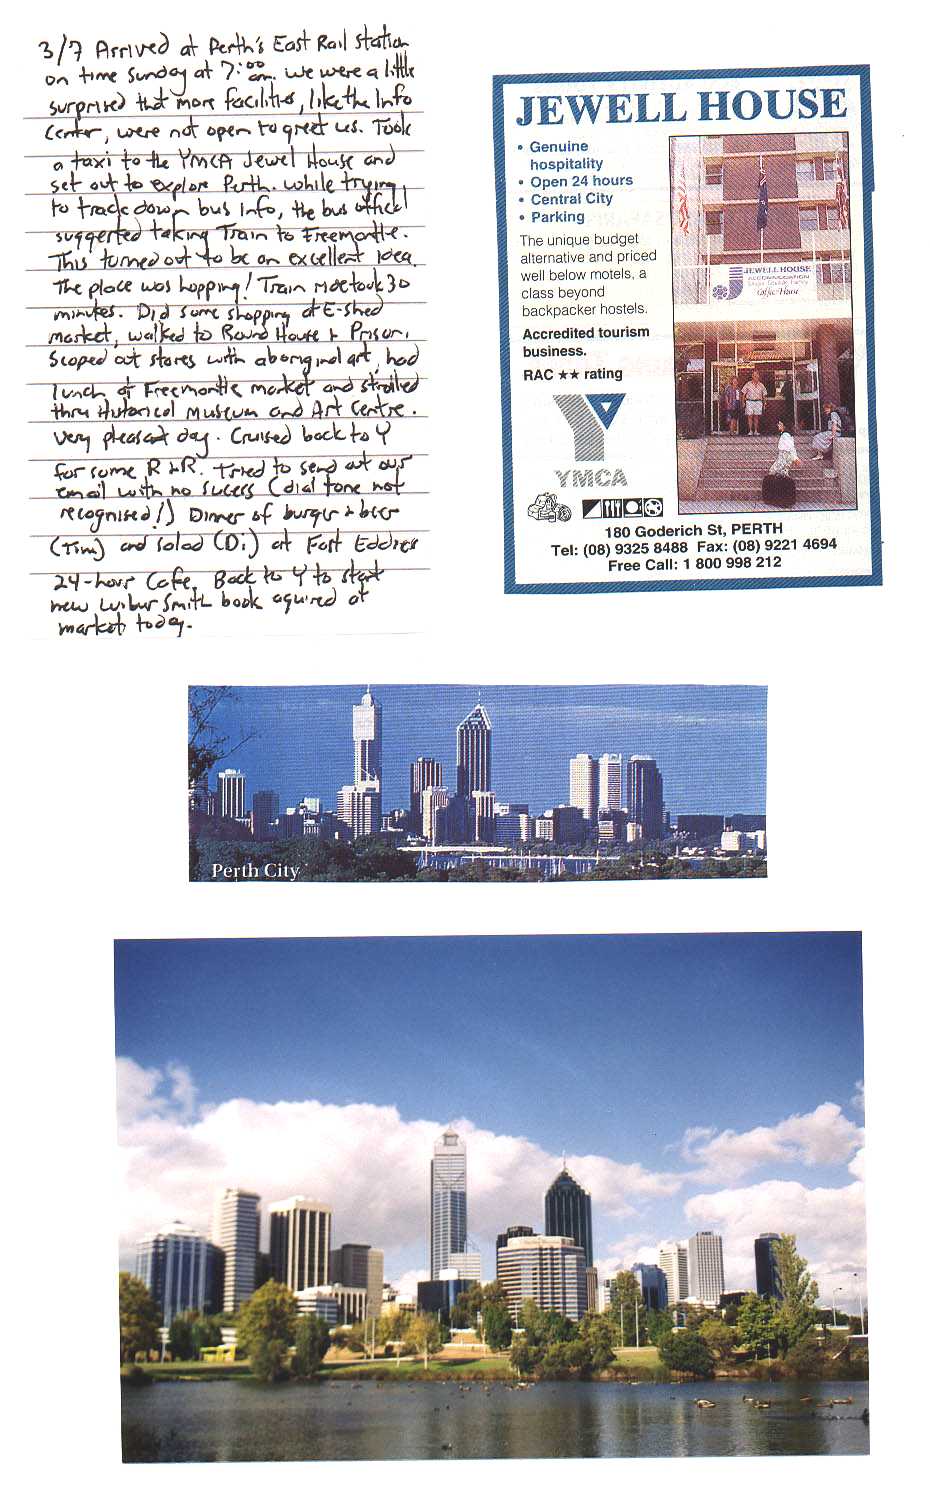 3/7 Arrived at Perth's East Rail Station
on time Sunday at 7:00 am. We were a little
surprised that more facilities, like the Info
Center, were not open to greet us. Took
a taxi to the YMCA Jewel House and
set out to explore Perth. While trying
to track down bus info, the bus official
suggested taking Train to Freemontle.
This turned out to be an excellent idea.
The place was hopping! Train ride took 30
minutes. Did some shopping at E-shed
market, walked to Round House & Prison,
Scoped out stores with aboriginal art, had
lunch at Freemontle market and strolled
thru Historical Museum and Art Centre.
Very pleasant day. Cruised back to Y
for some R &R. Tried to send out our
email with no sucess (dial tone not
recognised!) Dinner of burger & beer
(Tim) and salad (Di) at Fast Eddies
24-hour Cafe. Back to Y to start
new Wilbur Smith book aquired at
market today.
JEWELL HOUSE
• Genuine
hospitality
• Open 24 hours
• Central City
• Parking
The unique budget
alternative and priced
well below motels, a
class beyond
backpacker hostels.
Accredited tourism
business.
RAC ★★ rating
YMCA
JEWELL HOUSE
ACCOMMODATION
Coffee House
180 Goderich St, PERTH
Tel: (08) 9325 8488 Fax: (08) 9221 4694
Free Call: 1 800 998 212
Perth City